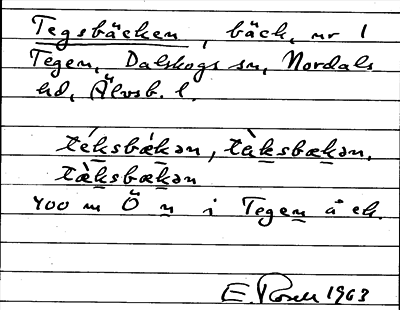 Tegsbäcken, bäck, nr 1
Tegen, Dalskogs sn, Nordals
hd, Älvsb. l.
téksbækən, tæ̀ksbækən,
tæ̀ksbækən
400 m Ö n i Tegen å ek.
E. Rosell 1963